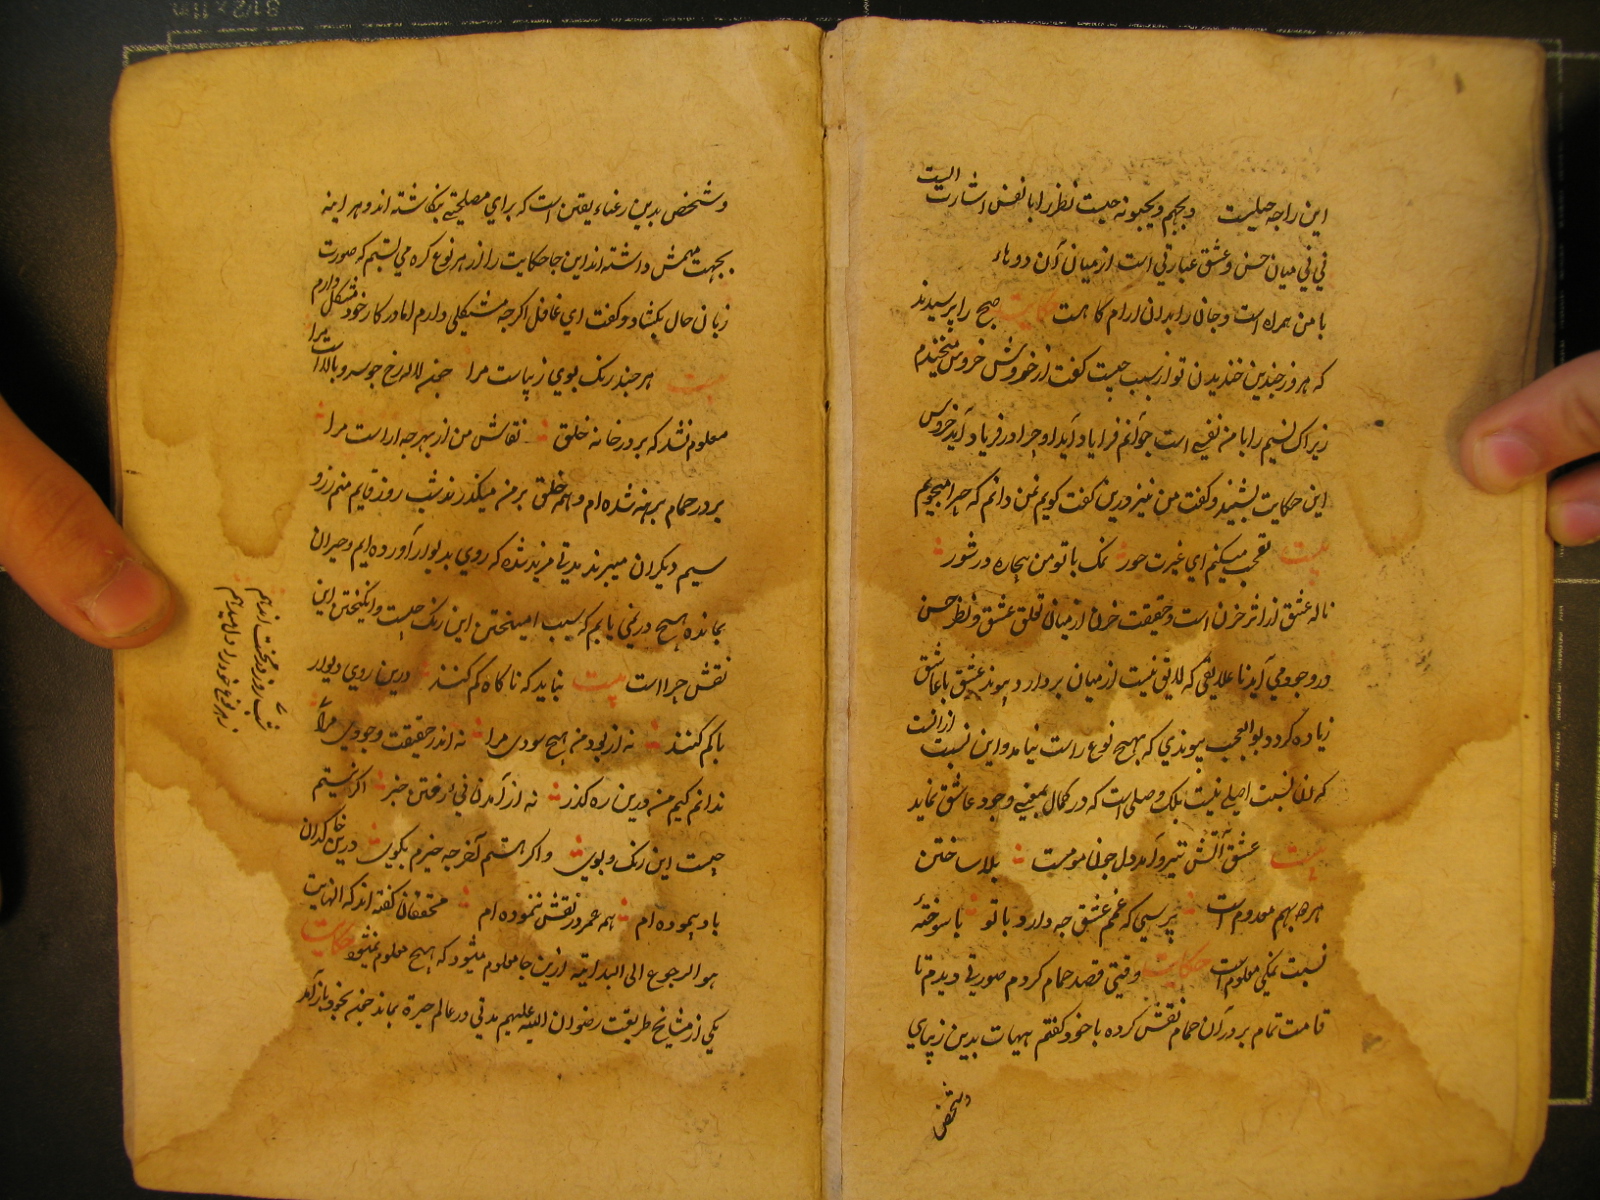 این را چه حیلیت و یحبهم و یحبونه چیست نظر را با نفس اشارت
الیت
نی نی میان حسن و عشق عبارتی است از میان آن دو هاء
با من همراه است و جان را بدان ارام کا هست حکایت صبح را پرسیدند
که هر روز چندین خندیدن تو از سبب چیست کفت از خروش خروس میخندم
زیراک نسیم را با من نفسی است چو آنم فرا یاد آید او چرا در فریاد آید خروس
این حکایت بشنید و کفت من نیز درین کفت کویم من دانم که چرا میجویم
بیت تعجب میکنم ای غیرت حور نمک با تو من بیچاره در شور
ناله عشق از اثر حزن است و حقیقت حزن از میان قلق عشق و نظر حسن
در وجود می آید تا علایقی که لایق نیست از میان بردارد پیوند عشق با عاشق
زیاده کردد بوالعجب پیوندی که بهیچ نوع راست نیامد و این نسبت
ازانست
که آن نسبت اصلی نیست بلک وصلی است که در کمال بمعنی وجود عاشق نماید
بیت عشق آتش تیز و آمد دل چون مومست بلا ساختن
هر ده بهم معدوم است پرسی که غم عشق چه دارد با تو با سوخته
نسبت نمکی معلوم است حکایت وقتی قصد حمام کردم صورتی دیدم تا
قامت تمام بر در آن حمام نقش کرده با خود کفتم هیهات بدین زیبای
و شخص
و شخص بدین رعناء یقین است که برای مصلحتی نکاشته اند و هر اینه
بجهت مهمش داشته اند این جا حکایت را از هر نوع کره می بستم که صورت
زبان حال بکشاد و کفت ای غافل اکرچه مشکلی دارم اما در کار خود مشکل دارم
بیت هر چند رنک بوی زیباست مرا چون لاله رخ چو سرو بالاست مرا
معلوم نشد که بر در خانه خلق نقاش من از بهر چه اراست مرا
بر در حمام برهنه شده ام و همه خلق بر من میکذرند شب روز قایم منم زر و
سیم دیکران میبرند مدتی مزید شده که روی بدیوار آورده ایم و حیران
بمانده هیچ در نمی یابم که سبب امیختن این رنک چیست و انکیختن این
نقش چرا است بیت نباید که ناکاه کم کنند درین روی دیوار
باکم کنند نه از بودمن هیچ سودی مرا نه اندر حقیقت وجودی مرا
ندانم کیم من درین ره کذر نه از آمدن نی ز رفتن خبر اکر نیستم
چیست این رنک و بوی و اکر هستم آخر چه خیرم بکوی درین خاکدان
باد پیموده ام همه عمر در نقش ننموده ام محققان کفته اند که النهایت
هو الرجوع الی البدایة ازین جا معلوم میشود که هیچ معلوم نمیشود حکایت
یکی از مشایخ طریقت رضوان الله علیهم مدتی در عالم حیرة بماند چون بخود باز آمد